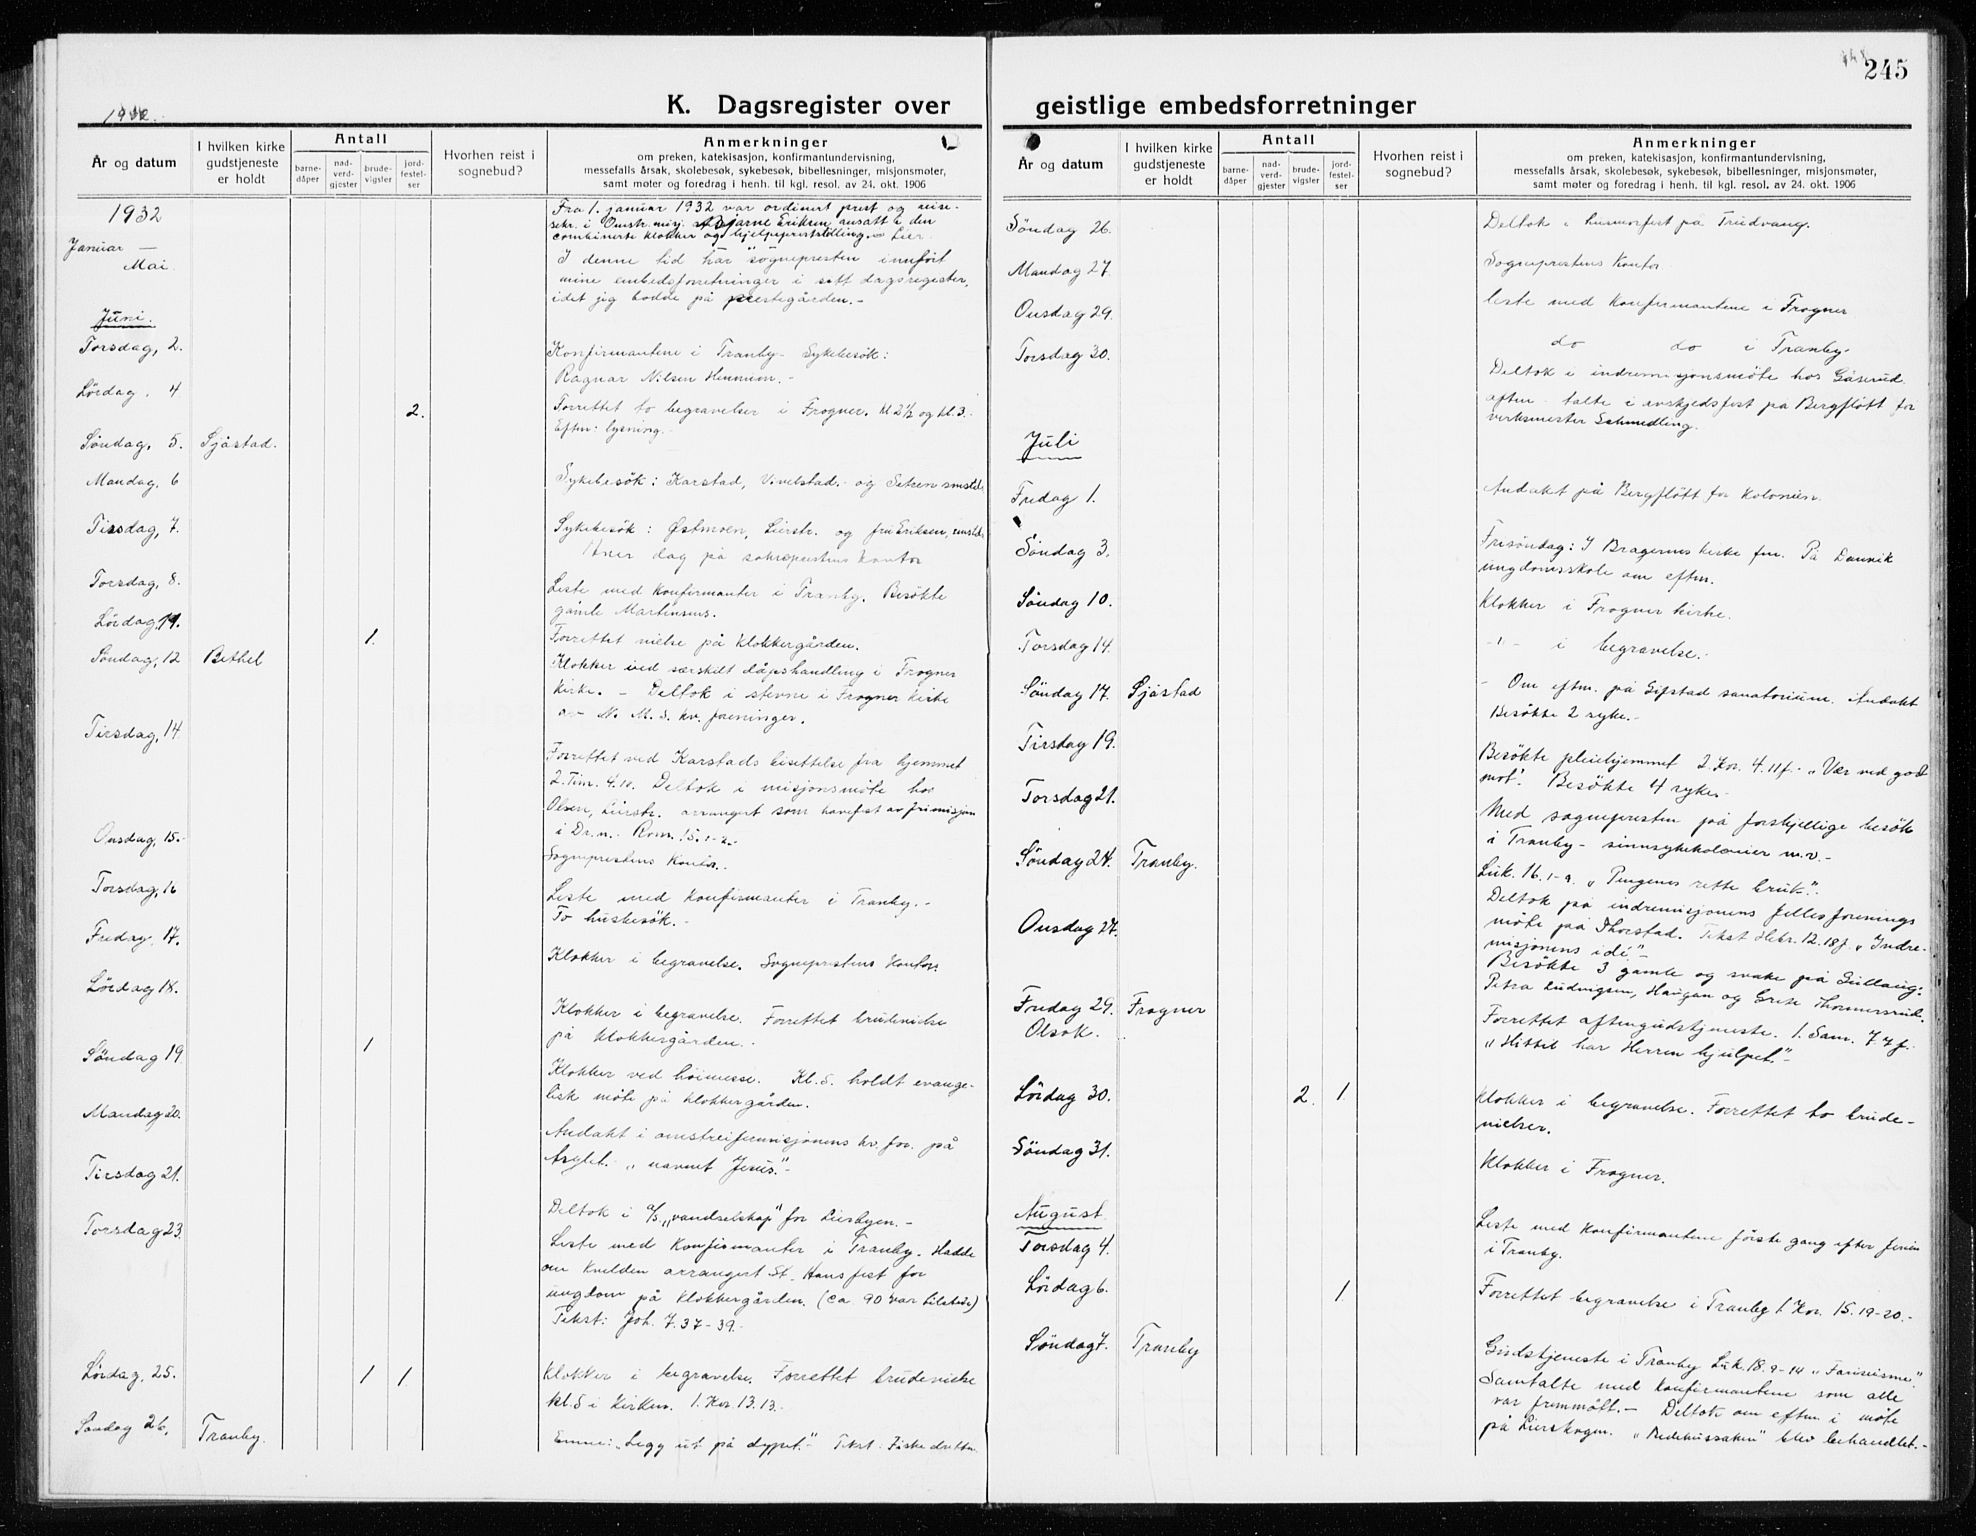 245
K. Dagsregister over
geistlige embedsforretninger
År og datum
I hvilken kirke
gudstjeneste
er holdt
Antall
barne-
dåper
nad-
verd-
gjester
brude-
vigsler
jord-
festel-
ser
Hvorhen reist i
sognebud?
Anmerkninger
om preken, katekisasjon, konfirmantundervisning,
messefalls årsak, skolebesøk, sykebesøk, bibellesninger, misjonsmøter,
samt møter og foredrag i henh. til kgl. resol. av 24. okt. 1906
1932
Januar —
Mai.
Fra 1. januar 1932 var ordinert prest og reise-
sekr. i Omstr. misj. Bjarne Eriksen ansatt i den
combinerte klokker og hjelpepreststilling i Lier
I denne tid har sognepresten innført
mine embedsforretninger i sitt dagsregister,
idet jeg bodde på prestegården. -
Juni.
Torsdag, 2.
Konfirmantene i Tranby - Sykebesök:
Ragnar Nilsen Hennum. -
Lördag. 4
2.
Forrettet to begravelser i Frogner. kl 2½ og kl. 3. -
Eftm: lysning. -
Söndag, 5. Sjåstad.
Mandag, 6
Sykebesök: Karstad, Vivelstad. og Setren
Tirsdag, 7.
Sykebesök: Østmoen, Lierstr. og fru Eriksen,
dag på sokneprestens kontor
Torsdag, 8.
Leste med konfirmanter i Tranby. Besökte
gamle Martinsens.
Lördag, 11.
1.
Forrettet vielse på Klokkergården.
Söndag, 12 Bethel
Klokker ved særskilt dåpshandling i Frogner
kirke. - Deltok i stevne i Frogner kirke
av N. M. S. kv. foreninger.
Tirsdag, 14
Forrettet ved Karstads bisettelse fra hjemmet
2. Tim. 4. Deltok i misjonsmöte hos
Olsen, Lierstr. arrangert som havefest av frimisjon
i Dr.n. - Rom. 15. 1-2. -
Onsdag, 15. -
Sogneprestens Kontor. -
Torsdag, 16
Leste med konfirmanter i Tranby. -
To husbesök. -
Fredag, 17.
Klokker i begravelse. Sogneprestens Kontor.
Lördag 18.
1
Klokker i begravelse. Forrettet brudevielse
på Klokkergården. -
Söndag 19
Klokker ved höimesse. Kl. 5. holdt evange-
lisk möte på klokkergården.
Mandag 20.
Andakt i omstreifermisjonens kv. for. på
Asylet. „navnet Jesus." -
Tirsdag 21.
Deltok i A/S „vandselskap" for Lierbyen. -
Torsdag 23.
Leste med Konfirmanter i Tranby. Hadde
om kvelden arrangert St. Hans fest for
ungdom på Klokkergården. (ca 90 var tilstede)
Tekst: Joh. 7. 37-39. -
Lördag, 25.
1 1
Klokker i begravelse. Forrettet brudevielse
kl. 5 i Kirken. 1. Kor. 13. 13. -
Söndag 26, Tranby.
Emne: „Legg ut på dypet" - Tekst: Fiskedretten
Söndag 26.
Deltok i havefest på Trudvang.
Mandag 27.
Sogneprestens Kontor
Onsdag 29.
leste med Konfirmantene i Frogner
Torsdag 30.
do do i Tranby.
Deltok i indremisjonsmöte hos Gåserud
aften - talte i avskjedsfest på Bergflött for
verksmester Schmedling.
Juli
Fredag 1.
Andakt på Bergflött for Kolonien.
Söndag 3.
Frisöndag: I Bragernes kirke fm. På Danvik
ungdomsskole om eftm.
Söndag 10.
Klokker i Frogner kirke.
Torsdag 14.
-"- i begravelse. -
Söndag 17. Sjåstad
- Om eftm. på Gifstad sanatorium. Andakt
Besökte 2 syke. -
Tirsdag 19.
Besökte pleiehjemmet 2 Kor. 4. 11f. - „Vær ved godt
mot". Besökte 4 syke. -
Torsdag 21.
Med sognepresten på forskjellige besök
i Tranby - sinnsykekolonier m.v. -
Söndag 24. Tranby.
Luk. 16. 1-9. „Pengenes rette bruk". -
Onsdag 27.
Deltok på indremisjonens fellesforenings
möte på Thorstad. Tekst Hebr. 12. 18f. „Indre-
misjonens idé" -
Besökte 3 gamle og svake på Gullaug:
Petra Ludvigsen, Haugan og Grete Thommesrud.
Fredag 29. Frogner
Olsok.
Forrettet aftengudstjeneste. 1. Sam. 7. 7f. -
„Hittil har Herren hjulpet." -
Lördag 30.
2. 1.
Klokker i begravelse. Forrettet to brude-
vielser.
Söndag 31.
Klokker i Frogner.
August
Torsdag 4.
Leste med Konfirmantene förste gang efter ferien
i Tranby.
Lördag 6.
1
Forrettet begravelse i Tranby 1 Kor. 15. 19-20. -
Söndag 7. Tranby
Gudstjeneste i Tranby Luk. 18. 9-14 „Fariseisme"
Samtalte med konfirmantene som alle
var fremmött. - Deltok om eftm. i möte
på Lierskogen. „Bedehussaken" blev behandlet. -